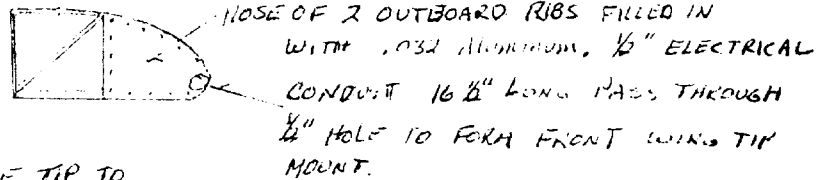 NOSE OF 2 OUTBOARD RIBS FILLED IN
WITH .032 ALUMINUM. ½" ELECTRICAL
CONDUIT 16 ½" LONG PASS THROUGH
½" HOLE TO FORM FRONT WING TIP
MOUNT.
TIP TO